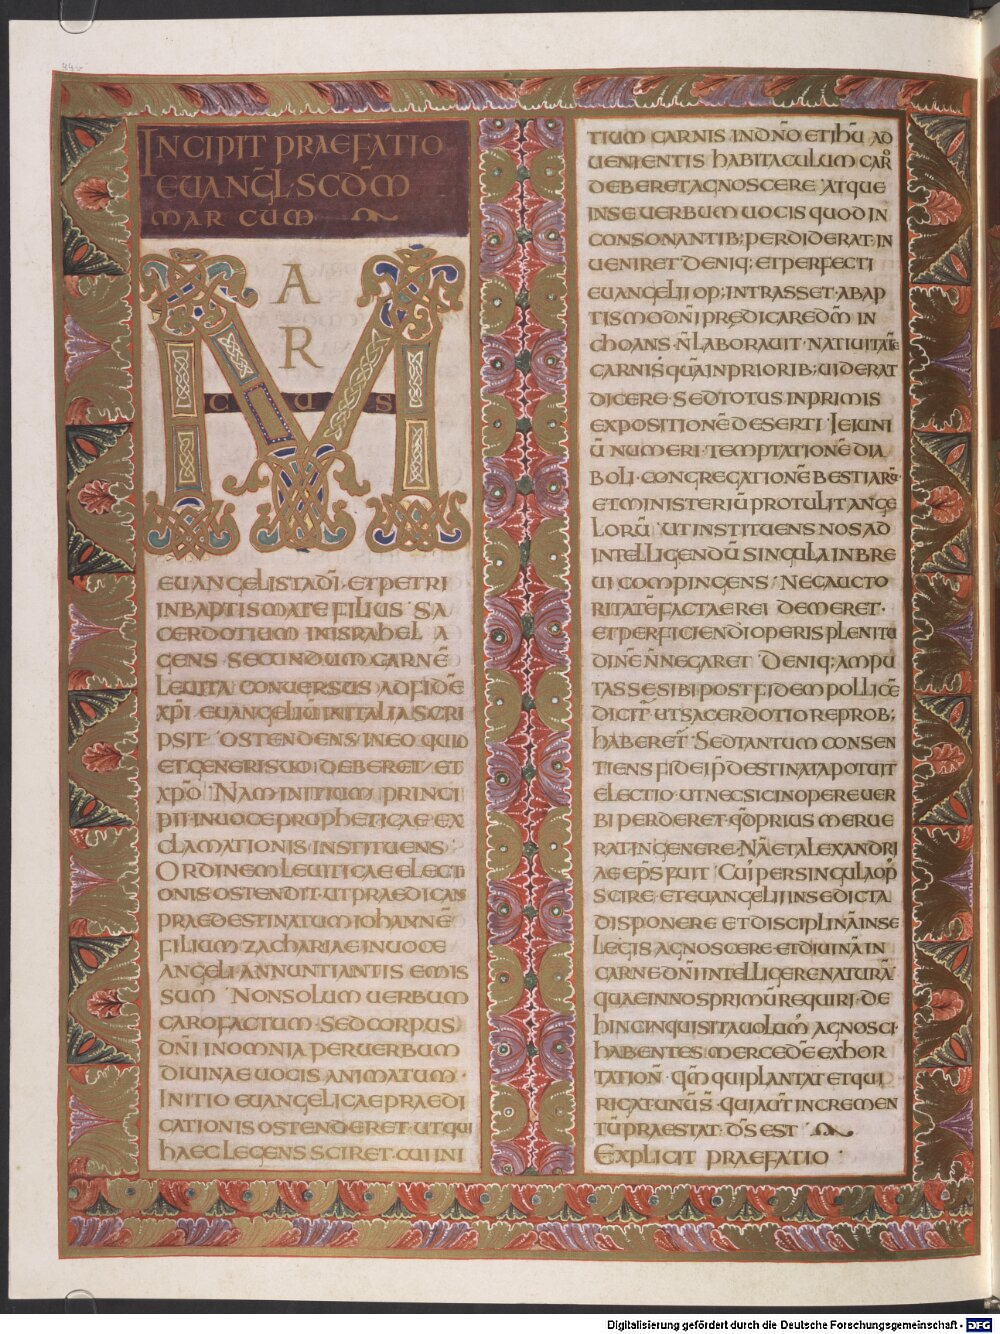 44v
INCIPIT PRAEFATIO
EUANGL̄·SCDM̄
MARCUM
MAR
CUS
EUANGELISTA DĪ·ET PETRI
IN BAPTISMATE FILIUS SA
CERDOTIUM IN ISRAHEL A
GENS SECUNDUM CARNĒ
LEVITA CONUERSUS AD FIDĒ
XPĪ EUANGELIŪ IN ITALIA SCRI
PSIT OSTENDENS IN EO QUID
ET GENERI SUO DEBERET ET
XPŌ NAM INITIUM PRINCI
PII IN UOCE PROPHETICAE EX
CLAMATIONIS INSTITUENS
ORDINEM LEUITICAE ELECTI
ONIS OSTENDIT·UT PRAEDICANS
PRAEDESTINATUM IOHANNĒ
FILIUM ZACHARIAE IN UOCE
ANGELI ANNUNTIANTIS EMIS
SUM NON SOLUM UERBUM
CARO FACTUM SED CORPUS
DN̄I IN OMNIA PER UERBUM
DIUINAE UOCIS ANIMATUM·
INITIO EUANGELICAE PRAEDI
CATIONIS OSTENDERET·UT QUI
HAEC LEGENS SCIRET·CUI INI
TIUM CARNIS·IN DN̄O ET IHŪ AD
UENIENTIS HABITACULUM CAR̊
DEBERET AGNOSCERE ATQUE
IN SE UERBUM UOCIS QUOD IN
CONSONANTIB; PERDIDERAT·IN
UENIRET DENIQ; ET PERFECTI
EUANGELII OP; INTRASSET·A BAP
TISMO DN̄I PRĘDICARE DM̄ IN
CHOANS·N̄ LABORAUIT·NATIUITATĒ
CARNIS QUĀ IN PRIORIB; UIDERAT
DICERE·SED TOTUS IN PRIMIS
EXPOSITIONĒ DESERTI IEIUNI
Ū NUMERI·TEMPTATIONĒ DIA
BOLI·CONGREGATIONĒ BESTIARŪ·
ET MINISTERIŪ PROTULIT ANGE
LORŪ UT INSTITUENS NOS AD
INTELLIGENDŪ SINGULA IN BRE
UI COMPINGENS NEC AUCTO
RITATĒ FACTAE REI DEMERET·
ET PERFICIENDI OPERIS PLENITU
DINĒ N̄ NEGARET DENIQ; AMPU
TASSE SIBI POST FIDEM POLLICĒ
DICIT̄ UT SACERDOTIO REPROB;
HABERET̄ SED TANTUM CONSEN
TIENS FIDEI P̄DESTINATA POTUIT
ELECTIO·UT NEC SIC IN OPERE UER
BI PERDERET·QD̄ PRIUS MERUE
RAT IN GENERE·NĀ ET ALEXANDRI
AE EPS̄ FUIT CUI̓ PER SINGULA OP̓
SCIRE·ET EUANGELII IN SE DICTA
DISPONERE ET DISCIPLINĀ IN SE
LEGIS AGNOSCERE·ET DIUINĀ IN
CARNE DN̄I INTELLIGERE NATURĀ
QUAE IN NOS PRIMŪ REQUIRI·DE
HINC INQUISITA UOLUM̓ AGNOSCI·
HABENTES MERCEDĒ EXHOR
TATION̄·QM̄ QUI PLANTAT ET QUI
RIGAT·UNŪ S̄·QUI AUT̄ INCREMEN
TŪ PRAESTAT·DS̄ EST
EXPLICIT PRAEFATIO
Digitalisierung gefördert durch die Deutsche Forschungsgemeinschaft - DFG